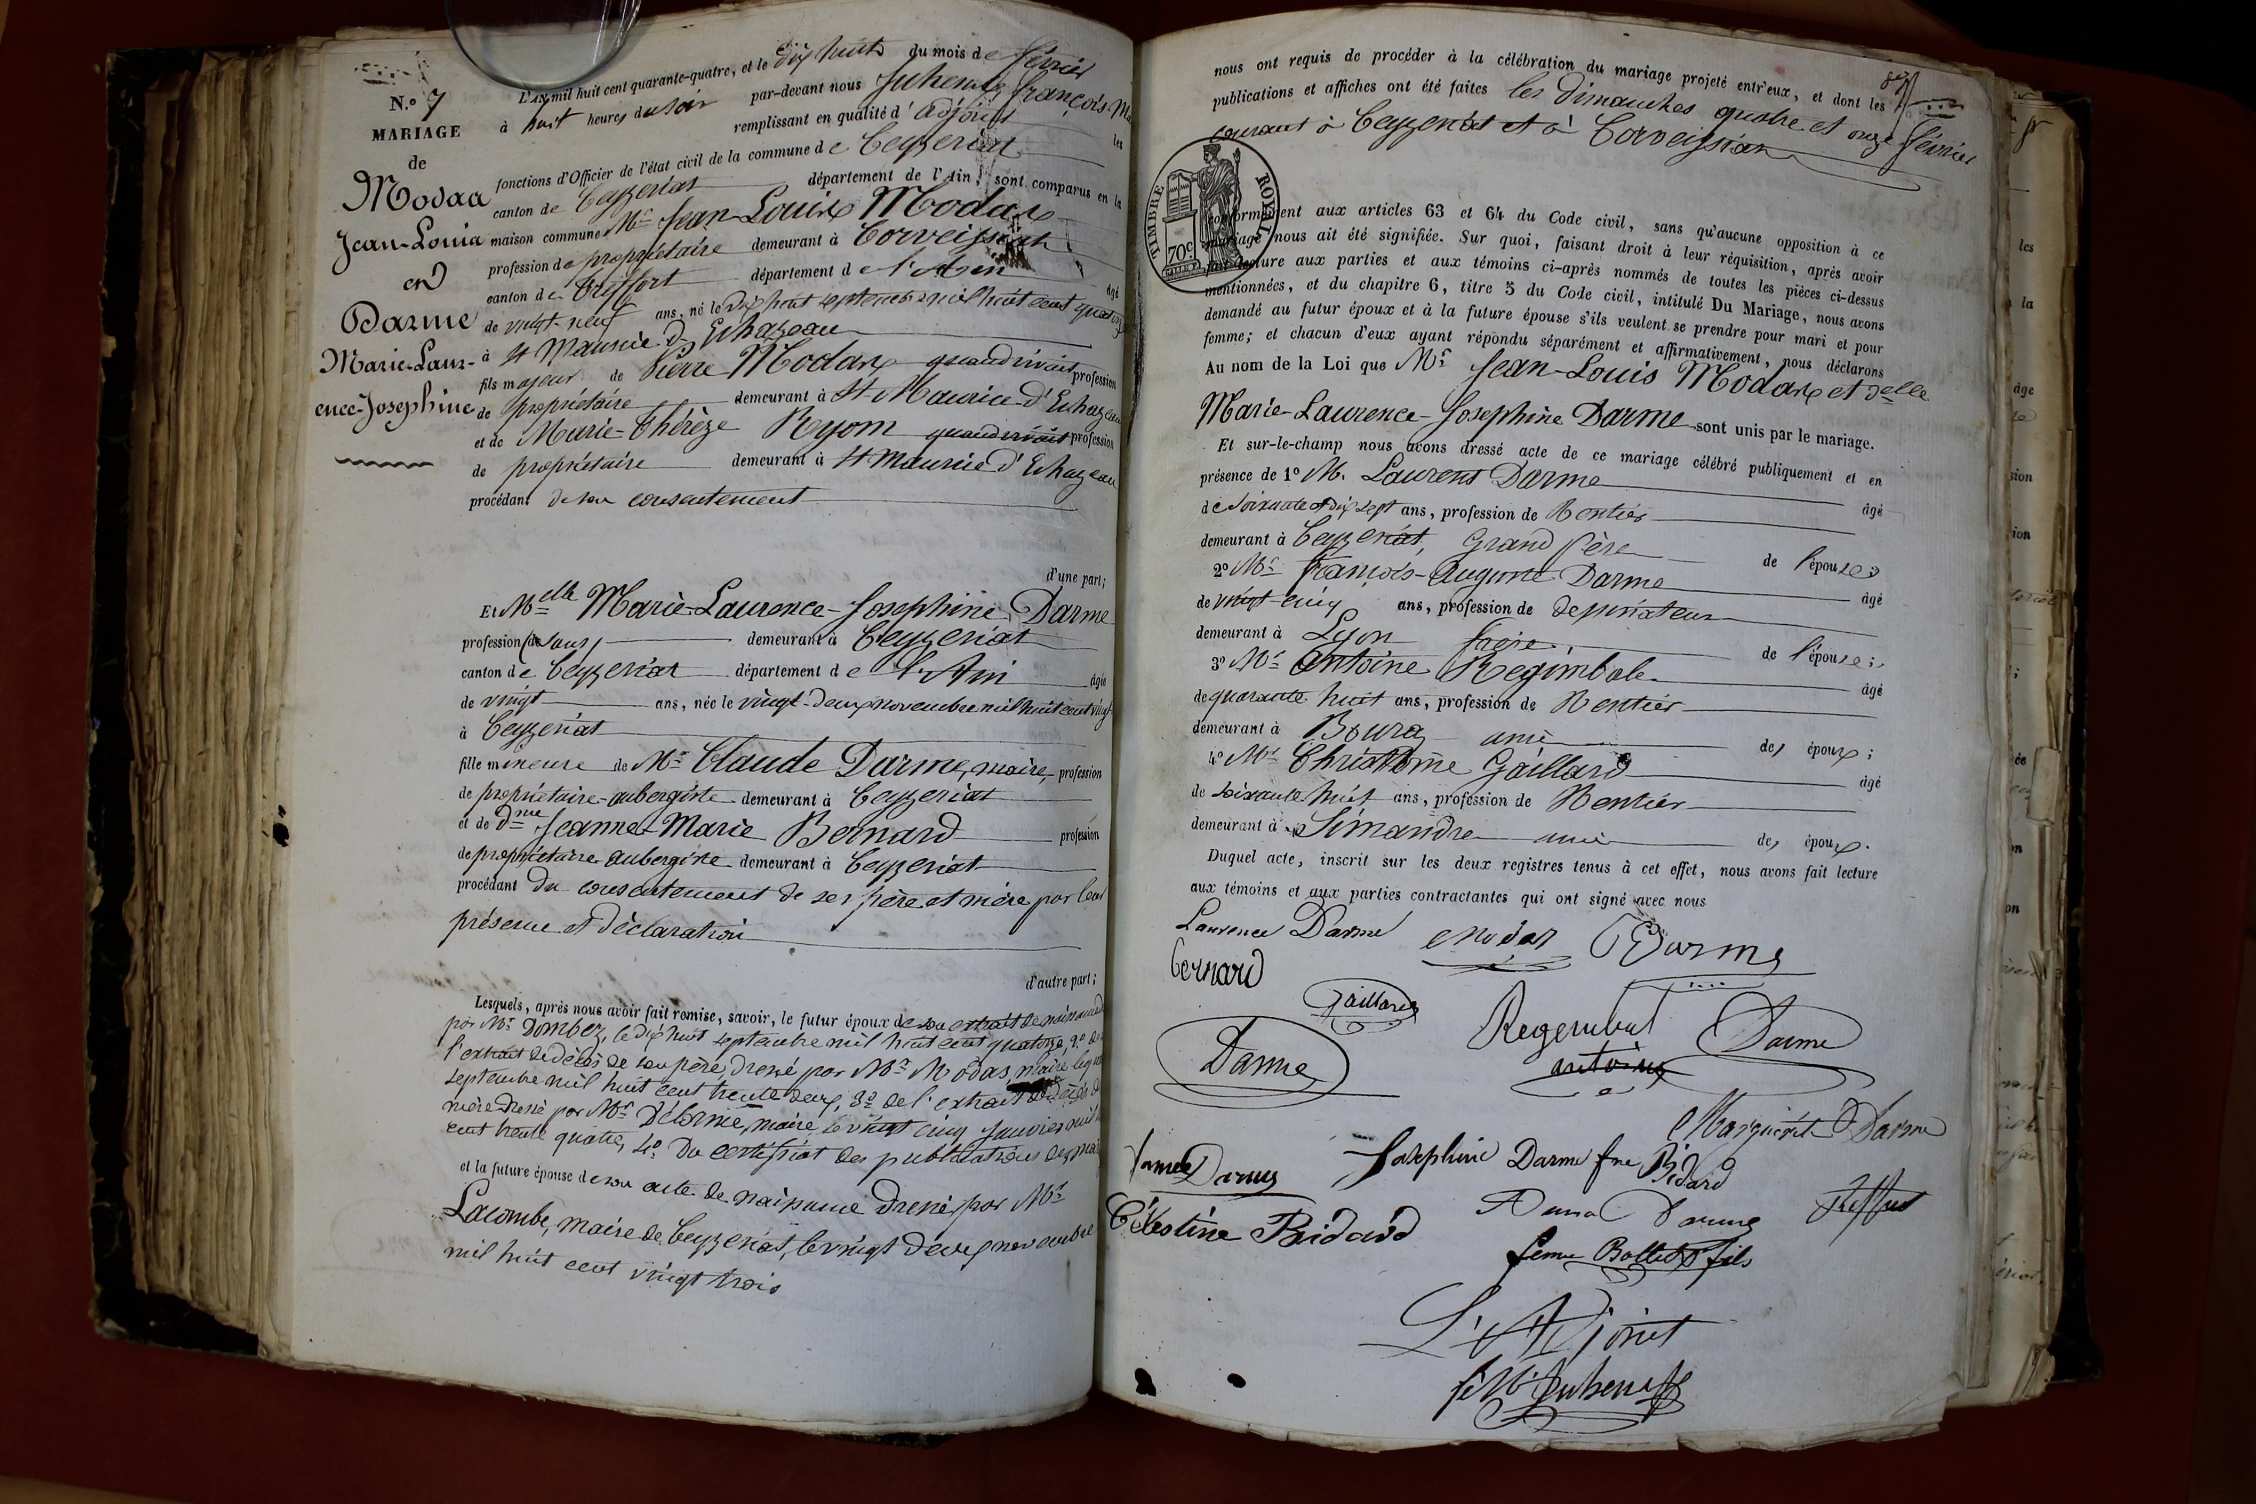 N.º 7
MARIAGE
de
Modas
Jean-Louis
et
Darme
Marie-Laur-
ence-Josephine
L'an mil huit cent quarante-quatre, et le dix huit du mois de février
à huit heures du soir par-devant nous Juhenet françois M
remplissant en qualité d'adjoint les
fonctions d'Officier de l'état civil de la commune de Ceyzeriat
canton de Ceyzeriat département de l'Ain, sont comparus en la
maison commune Mr Jean-Louis Modas
profession de propriétaire demeurant à Corveissiat
canton de Treffort département de l'Ain âgé
de vingt-neuf ans, né le dix huit septembre mil huit cent quatorze
à St Maurice d'Echazeau
fils majeur de Pierre Modas quand vivait profession
de propriétaire demeurant à St Maurice-d'Echazeau
et de Marie-Thérèze Ryom quand vivait profession
de propriétaire demeurant à St Maurice d'Echazeau
procédant de son consentement
d'une part;
Et Melle Marie-Laurence-Josephine Darme
profession (de sans) demeurant à Ceyzeriat
canton de Ceyzeriat département de l'Ain âgée
de vingt ans, née le vingt-deux novembre mil huit cent vingt
à Ceyzeriat
fille mineure de Mr Claude Darme, maire, profession
de propriétaire-aubergiste demeurant à Ceyzeriat
et de dme Jeanne-Marie Bernard profession
de propriétaire aubergiste demeurant à Ceyzeriat
procédant du consentement de ses père et mère par leur
présence et déclaration
d'autre part;
Lesquels, après nous avoir fait remise, savoir, le futur époux de son extrait de naissance
par Mr Dombez, le dix huit septembre mil huit cent quatorze, 2º de
l'extrait de décès de son père, dressé par Mr Modas, maire le
septembre mil huit cent trente deux, 3º de l'extrait de décès de
mère dressé par Mr Délorme, maire le vingt cinq janvier mil
cent trente quatre, 4º Du certificat des publications de
et la future épouse de son acte de naissance dressé par Mr
Lacombe, maire de Ceyzeriat, le vingt deux novembre
mil huit cent vingt trois
nous ont requis de procéder à la célébration du mariage projeté entr'eux, et dont les
publications et affiches ont été faites les dimanches quatre et onze février
courant à Ceyzeriat et à Corveissiat
TIMBRE ROYAL
70 c.
conformément aux articles 63 et 64 du Code civil, sans qu'aucune opposition à ce
mariage nous ait été signifiée. Sur quoi, faisant droit à leur réquisition, après avoir
fait lecture aux parties et aux témoins ci-après nommés de toutes les pièces ci-dessus
mentionnées, et du chapitre 6, titre 5 du Code civil, intitulé Du Mariage, nous avons
demandé au futur époux et à la future épouse s'ils veulent se prendre pour mari et pour
femme; et chacun d'eux ayant répondu séparément et affirmativement, nous déclarons
Au nom de la Loi que Mr Jean-Louis Modas et delle
Marie-Laurence-Josephine Darme sont unis par le mariage.
Et sur-le-champ nous avons dressé acte de ce mariage célébré publiquement et en
présence de 1º M. Laurent Darme âgé
de soixante et dix sept ans, profession de Rentier
demeurant à Ceyzeriat, Grand père de l'épouse;
2º Mr françois-Auguste Darme âgé
de vingt-cinq ans, profession de
demeurant à Lyon frère de l'épouse;
3º Mr Antoine Regimbal âgé
de quarante huit ans, profession de Rentier
demeurant à Bourg ami des époux;
4º Mr Gaillard âgé
de soixante huit ans, profession de Rentier
demeurant à Simandre ami des époux.
Duquel acte, inscrit sur les deux registres tenus à cet effet, nous avons fait lecture
aux témoins et aux parties contractantes qui ont signé avec nous
Laurence Darme Modas Darme
bernard
Gaillard
Darme Regembal antoine Darme
Marguerite Darme
Darme Josephine Darme fme Bidard
Célestine Bidard Darme
feme Bollet fils
L'Adjoint
Juhenet